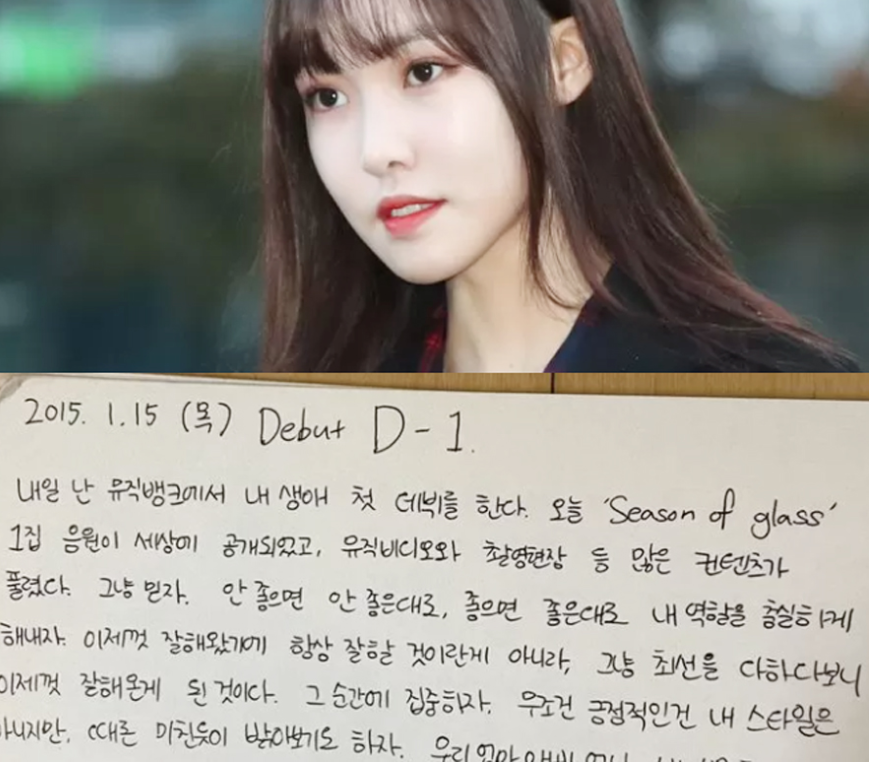 2015. 1.15 (목) Debut D-1.
내일 난 뮤직뱅크에서 내 생애 첫 데뷔를 한다. 오늘 'Season of glass'
1집 음원이 세상에 공개되었고, 뮤직비디오와 촬영현장 등 많은 컨텐츠가
풀렸다. 그냥 믿자. 안 좋으면 안 좋은대로, 좋으면 좋은대로 내 역할을 충실하게
해내자. 이제껏 잘해왔기에 항상 잘할 것이란게 아니라, 그냥 최선을 다하다보니
이제껏 잘해온게 된 것이다. 그 순간에 집중하자. 무조건 긍정적인건 내 스타일은
아니지만, 때론 미친듯이 받아보기도 하자. 우리